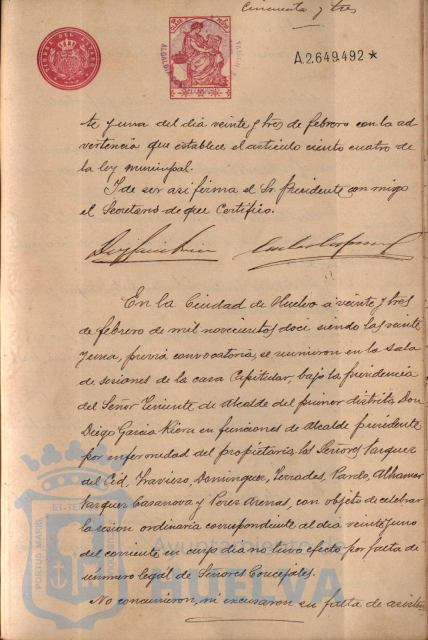 Cincuenta y tres
A.2.649.492 *
te y una del dia veinte y tres de febrero con la ad-
vertencia que establece el articulo ciento cuatro de
la ley municipal.
Y de ser asi firma el Sr. Presidente con migo
el Secretario de que Certifico.
En la Ciudad de Huelva a veinte y tres
de febrero de mil novecientos doce siendo las veinte
y una, previa convocatoria, se reunieron en la sala
de sesiones de la casa Capitular, bajo la presidencia
del Señor Teniente de Alcalde del primer distrito Don
Diego Garcia en funciones de Alcalde presidente
por enfermedad del propietario, los Señores Vazquez
del Cid, Travieso, Dominguez, Terrades, Pardo,
Vazquez Casanova y Perez Arenas, con objeto de celebrar
la sesion ordinaria correspondiente al dia veinte y uno
del corriente en cuyo dia no tuvo efecto por falta de
numero legal de Señores Concejales.
No concurrieron, ni excusaron su falta de asisten
Ayuntamiento de
HUELVA